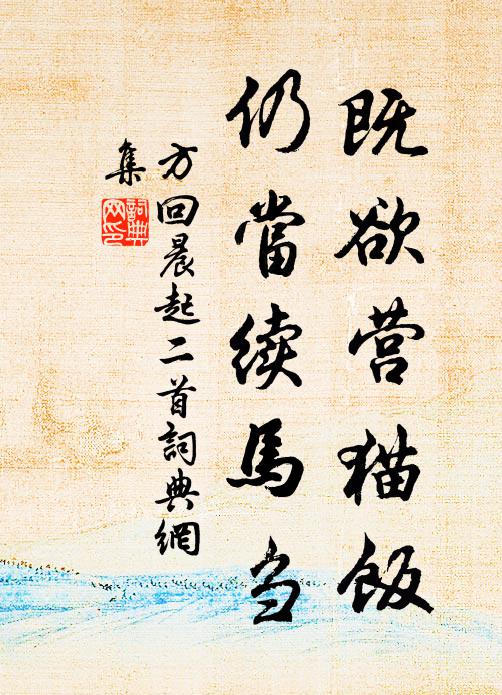 既欲营猫饭
仍當续馬刍
方回晨起二首詞典網
集
詞典
网印